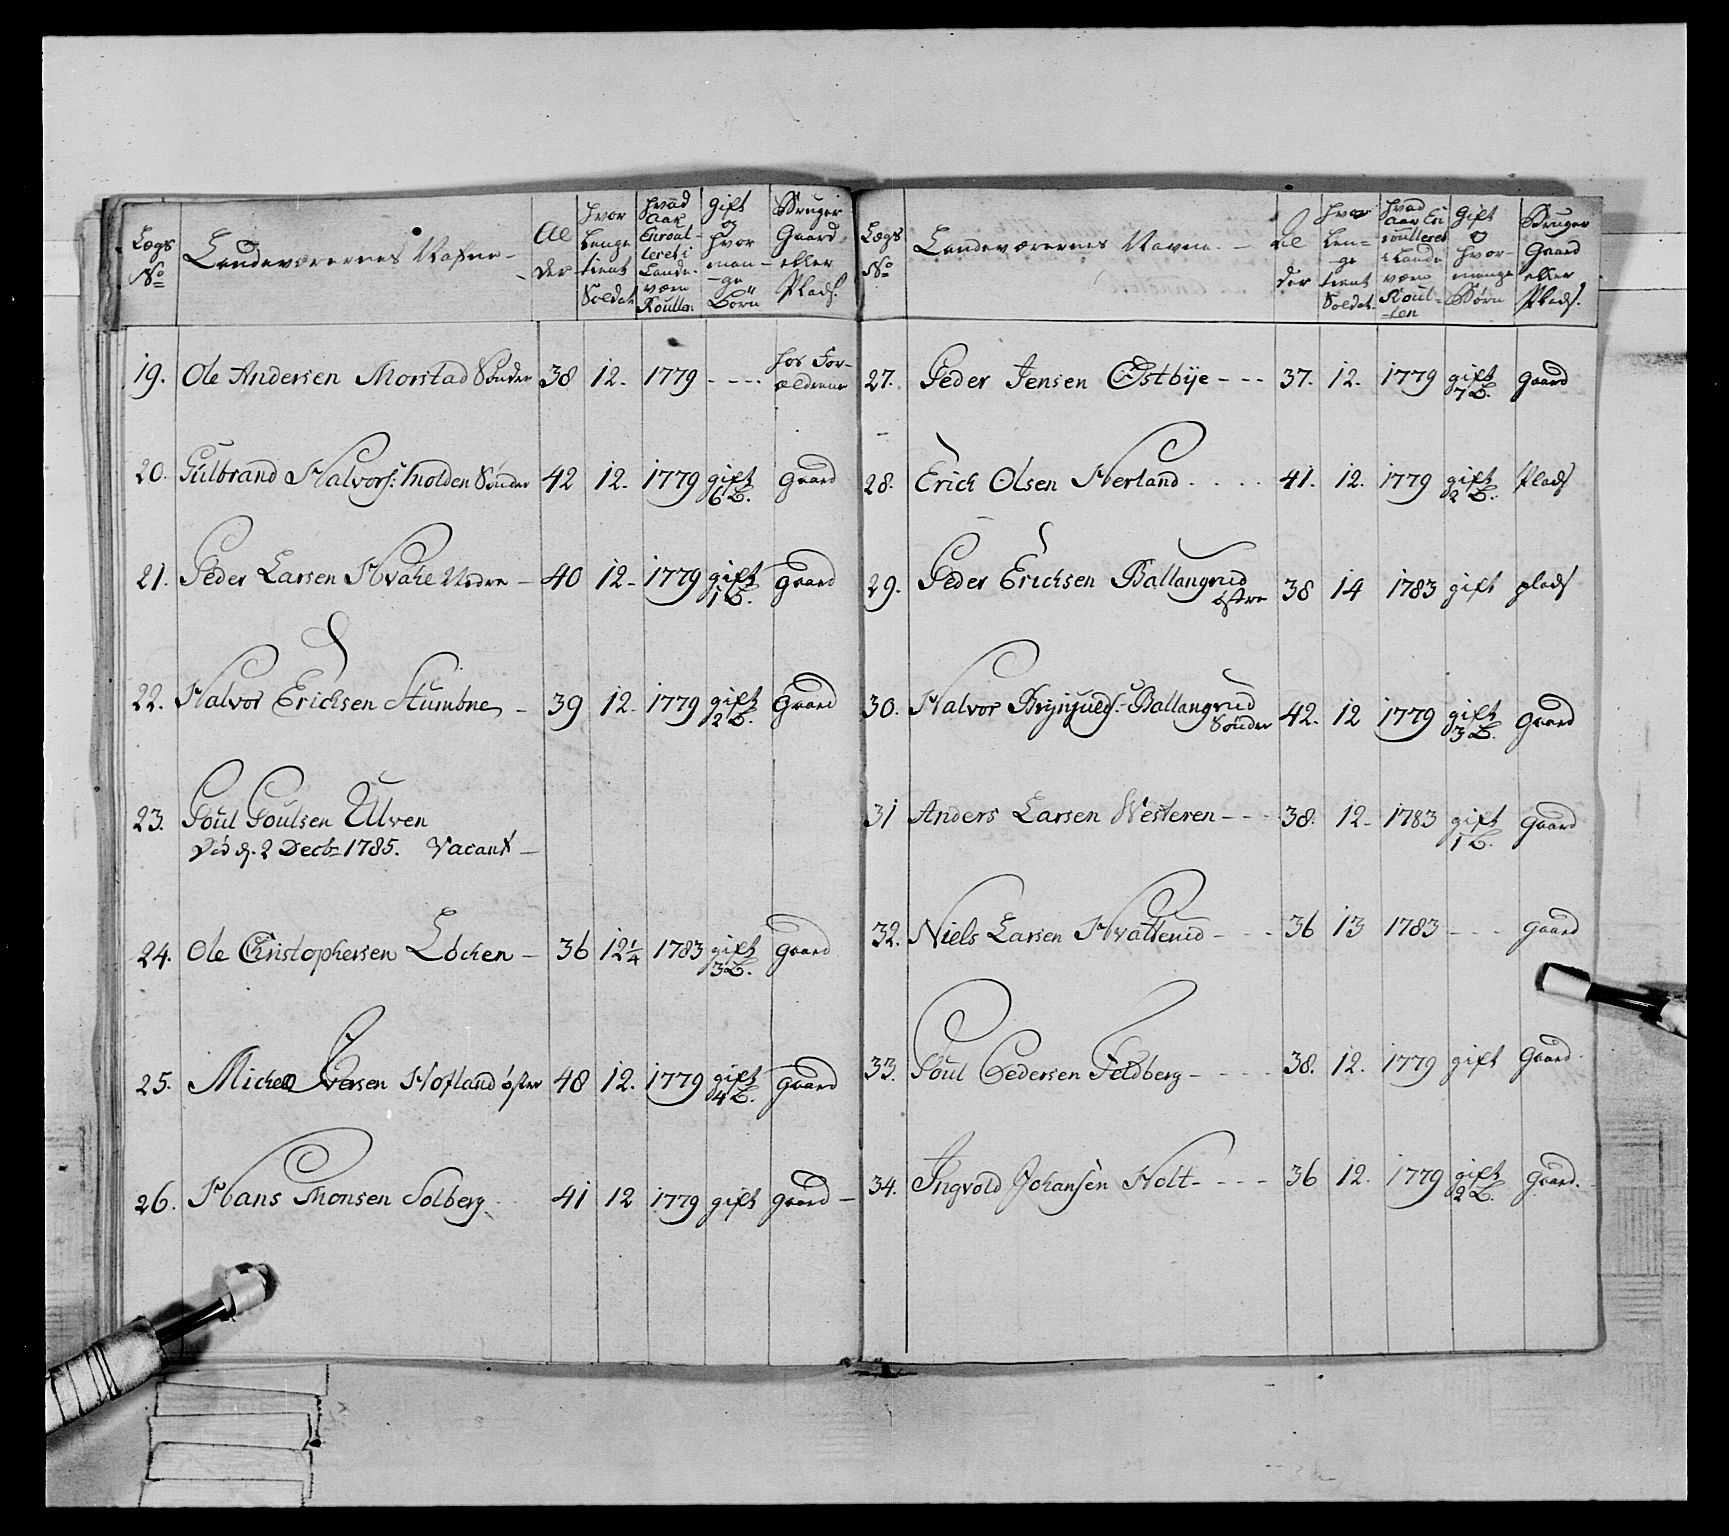 Lægs No Landeværernes Nafne Alder hvor lenge tient Soldat hvad Aar Enroulleret i Landeværn Roullen Gift og hvor mange Börn Bruger Gaard eller Plads.
19. Ole Andersen Morstad Sönder 38 12. 1779 - - - - hos Forældrene
20. Gulbrand Halvors: Molden Sönder 42 12. 1779 gift 6 B. gaard
21. Peder Larsen Hvahle Nedre 40 12 1779 gift 1 B. gaard
22. Halvor Erichsen Stumbne 39 12. 1779 gift 2 B. gaard
23. Poul Poulsen Ulven
Död d. 2 Decb: 1785. Vacant
24. Ole Christophersen Löchen 36 12¼ 1783 gift 3 B. gaard
25. Michel Iversen Hofland öster 48 12. 1779 gift 4 B. gaard
26. Hans Monsen Solberg 41 12 1779 gift gaard
Lægs No Landeværernes Navne. Alder hvor lenge tient Soldat. hvad Aar Enroulleret i Landeværn Roullen Gift og hvor mange Börn Bruger Gaard eller Plads.
27. Peder Jensen Østbye - - - 37. 12. 1779 gift 7 B. gaard
28. Erich Olsen Herland . . . . 41. 12. 1779 gift 2 B. Plads
29. Peder Erichsen Ballangrud østre 38 14 1783 gift plads
30. Halvor Brynjulds: Ballangrud Sönder 42. 12 1779 gift 3 B. gaard
31 Anders Larsen Westeren - - - 38. 12. 1783 gift 1 B. gaard
32. Niels Larsen Hvatterud - - - 36 13 1783 - - - gaard
33. Poul Pedersen Feldberg - - - - 38. 12. 1779 gift gaard.
34. Ingvold Johansen Holt - - - - 36 12. 1779 gift 2 B. gaard.